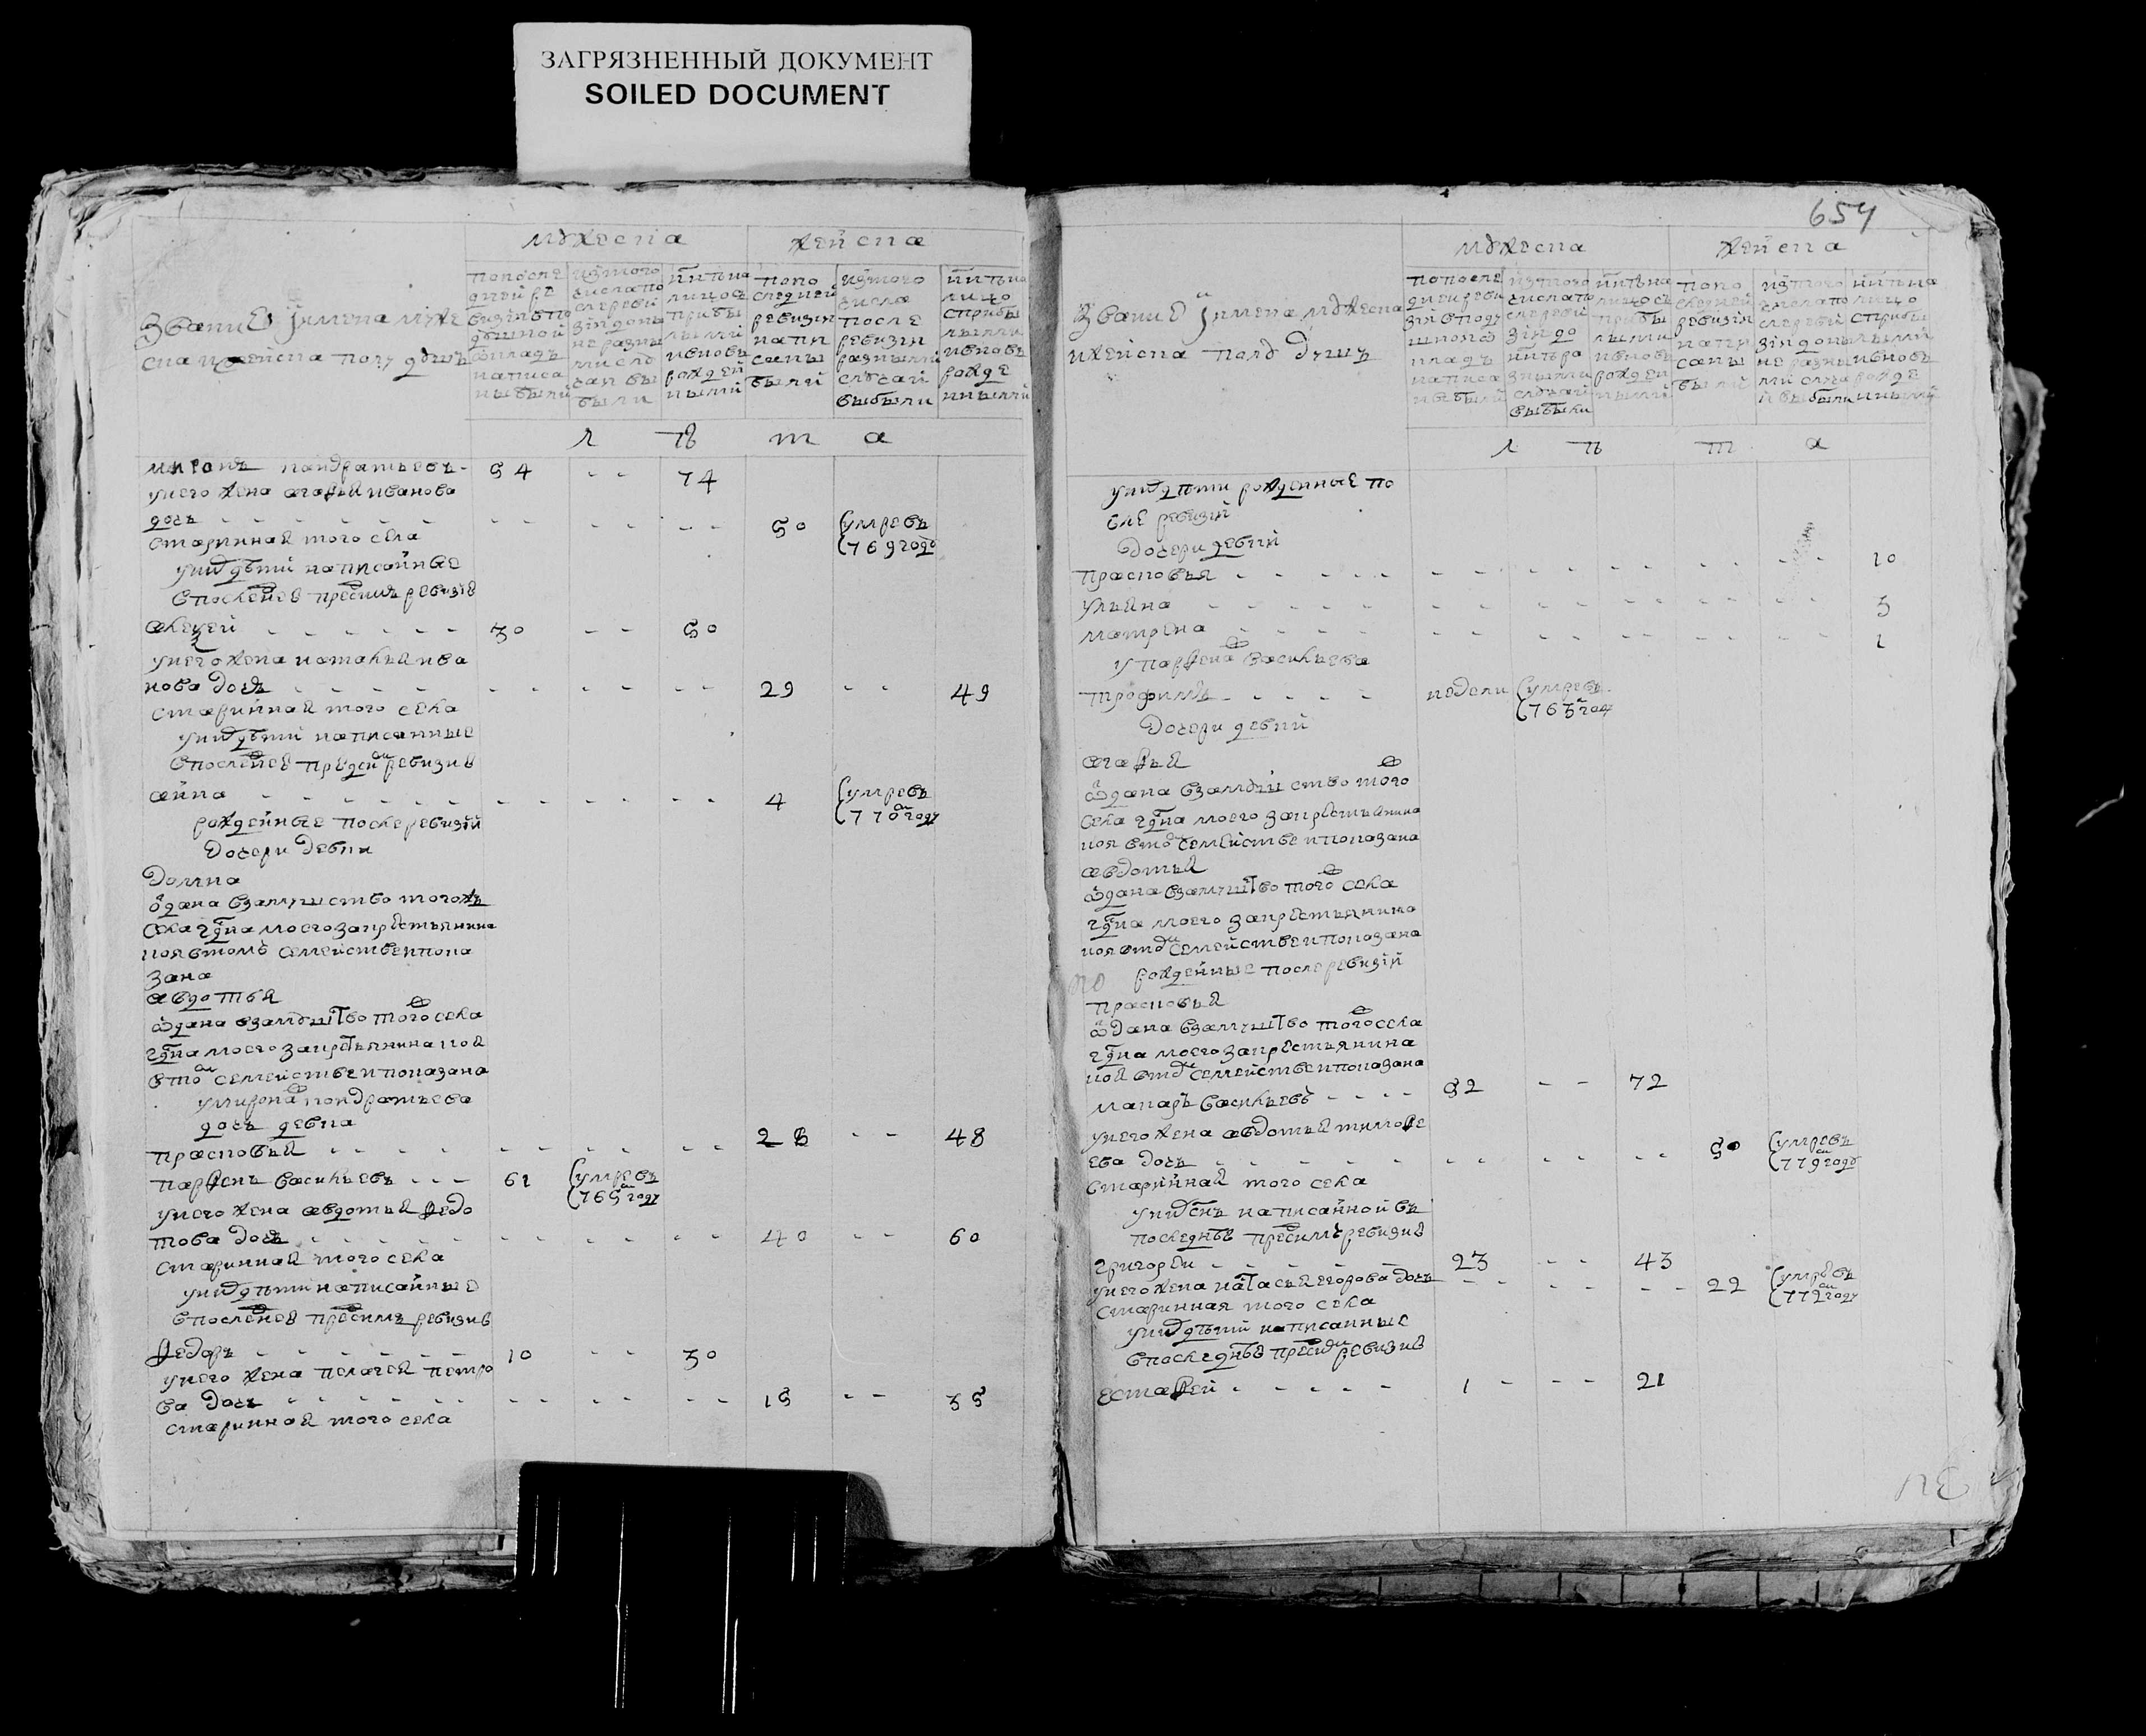 ЗАГРЯЗНЕННЫЙ ДОКУМЕНТ
SOILED DOCUMENT
мужеска женска
звание и имена муже
ска и женска полу душъ
по после
дней ре
визіи в по
душной
оклад
написа
ны были
из того
числа по
сле реви
зіи до ны
не разны
ми слу
чаи вы
были
ныне на
лицо с
прибы
лыми
и вновь
рожден
ными
по по
следней
ревизіи
напи
саны
были
из того
числа
после
ревизіи
разными
случаи
выбыли
ныне на
лицо
с прибы
лыми
и вновь
рожде
ными
л ѣ т а
миронъ кондратьевъ - 54 - - 74
у него жена агафья иванова
дочь - - - 50 умре въ
769 году
старинная того села
у них дети написанные
в последней пред сим ревизіе
алексей - - - 30 - - 50
у него жена наталья ива
нова дочь - - - 29 - - 49
старинная того села
у них дети написанные
в последней пред сим ревизие
анна - - - 4 умре въ
770м году
рожденные после ревизіи
дочери девки
домна
одана в замужство того жъ
села гдна моего за крестьянина
коя в томъ семействе и пока
зана
авдотья
одана в замужство того ж села
гдна моего за крестьянина коя
в том семействе и показана
у мирона кондратьева
дочь девка
прасковья - - - 28 - - 48
парфенъ васильевъ - - - 61 умре въ
765м году
у него жена авдотья федо
това дочь - - - 40 - - 60
старинная того села
у них дети написанные
в последней пред симъ ревизие
федоръ - - - 10 - - 30
у него жена пелагея петро
ва дочь - - - 15 - - 35
старинная того села
654
мужеска женска
звание и имена мужеска
и женска полу душъ
по после
дней реви
зіи в поду
шной о
кладъ
написа
ны были
из того
числа по
сле реви
зіи до
ныне ра
зными
случаи
выбыли
ныне на
лицо съ
прибы
лыми
и вновь
рожден
ными
по по
следней
ревизіи
напи
саны
были
из того
числа по
сле реви
зіи до ны
не разны
ми случа
и выбыли
ныне на
лицо
с прибы
лыми
и вновь
рожде
ными
л ѣ т а
у них дети рожденные по
сле ревизіи
дочери девки
прасковья - - - 10
ульяна - - - 3
матрена - - - 1
у парфена ж васильева
трофимъ - - - недели умре въ
763м год
дочери девки
агафья
одана в замужство того ж
села гдна моего за крестьянина
коя в том семействе и показана
авдотья
одана в замужство того ж села
гдна моего за крестьянина
коя в том семействе и показана
рожденные после ревизіи
прасковья
одана в замужство того ж села
гдна моего за крестьянина
коя в том семействе и показана
макаръ васильевъ - - - 52 - - 72
у него жена авдотья тимофе
ева дочь - - - 50 умре въ
779м году
старинная того села
у них сынъ написанной въ
последней пред симъ ревизие
григорей - - - 23 - - 43
у него жена настасья егорова дочь - - 22 умре въ
772м году
старинная того села
у них дети написанные
в последней пред сим ревизие
естафей - - - 1 - - - 21